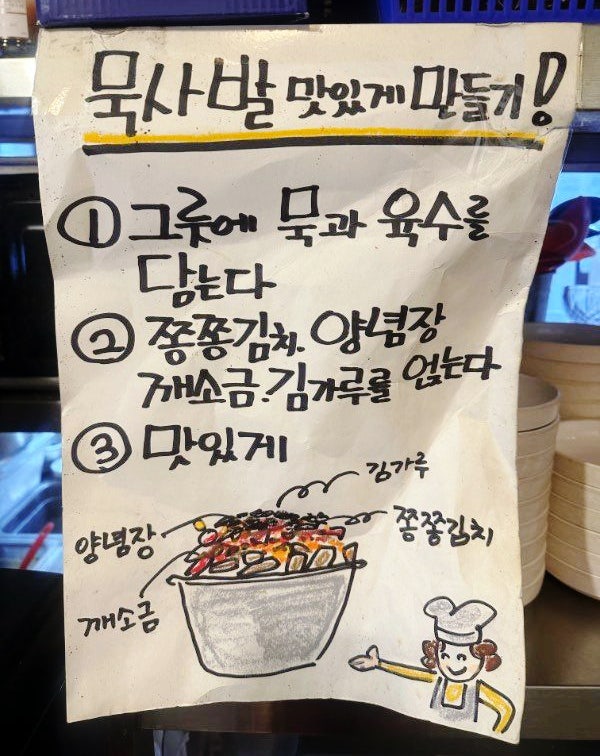 묵사발 맛있게 만들기!
① 그릇에 묵과 육수를
담는다
② 쫑쫑김치. 양념장
깨소금.김가루를 얹는다
③ 맛있게
김가루
양념장
쫑쫑김치
깨소금